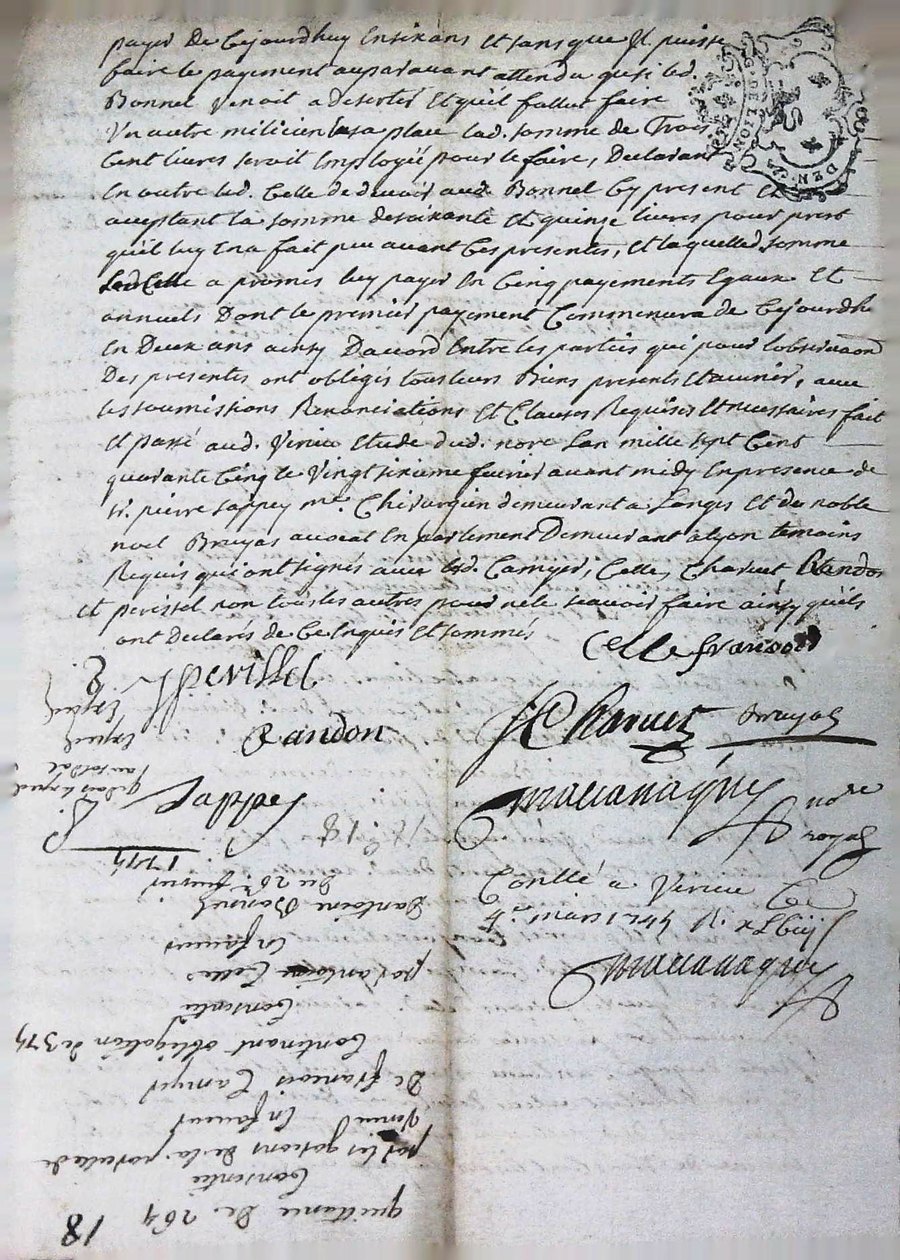 payer de cejourdhuy en six ans et sans que Il puisse
faire le payement auparavant attendu que si led.
Bonnel venoit a deserter et quil fallut faire
Un autre milicien en sa place lad. somme de Trois
Cent livres seroit employée pour le faire, Declarant
En outre led. Celle de devoir aud. Bonnel cy present et
acceptant la somme de soixante et quinse livres pour prest
quil luy en a fait peu avant ces presentes, et laquelle d. somme
led Celle a promis luy payer en Cinq payements Egaux et
annuels Dont le premier payement Commencera de cejourdhuy
en Deux ans ainsy Daccord Entre les parties qui pour lobservaon
Des presentes ont obligés tous leurs Biens presents et avenir, avec
les soumissions Renonciations et Clauses Requises et necessaires fait
et passé aud. Verin Etude dud. nore Lan mille sept Cent
quarante Cinq le Vingt sixieme fevrier avant midy En presence de
sr. pierre sappey me. Chirurgien demeurant a Longes et de noble
noel Bruyas avocat en parlement Demeurant a lyon temoins
Requis qui ont signés avec led. Camyer, Celle, Charvet, Randon
et perissel non tous les autres pour ne le scavoir faire ainsy quils
ont Declarés de ce Enquis et sommés
Celle francois
perissel
Charvet
Bruyas
Randon
Sappey
nore
royal
G. DE LION
DEN. G.
Conllé a Verin
Ce
quittance de 264
Consentie
par les garcons de la parcelle de
Verin
En faveur
De francois Camyer
Contenant obligation de 375
Consentie
par antoine Celle
En faveur
Dantoine Bonnel
Du 26e. fevrier
1745
18